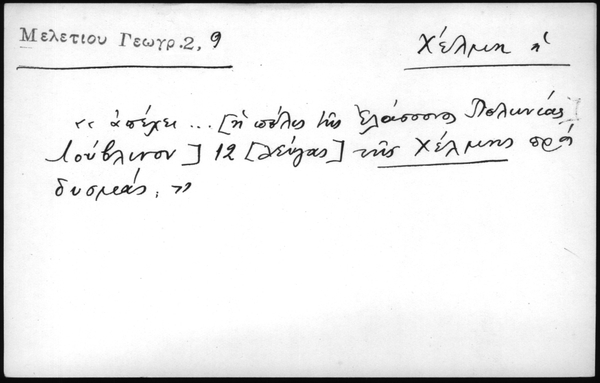 Μελετίου Γεωγρ.2, 9
Χέλμη ἡ
« ἀπέχει ... [ἡ πόλις τῆς Ἐλάσσονος Πολωνίας
Λούβλινον] 12 [λεύγας] τῆς Χέλμης πρὸς
δυσμάς. »